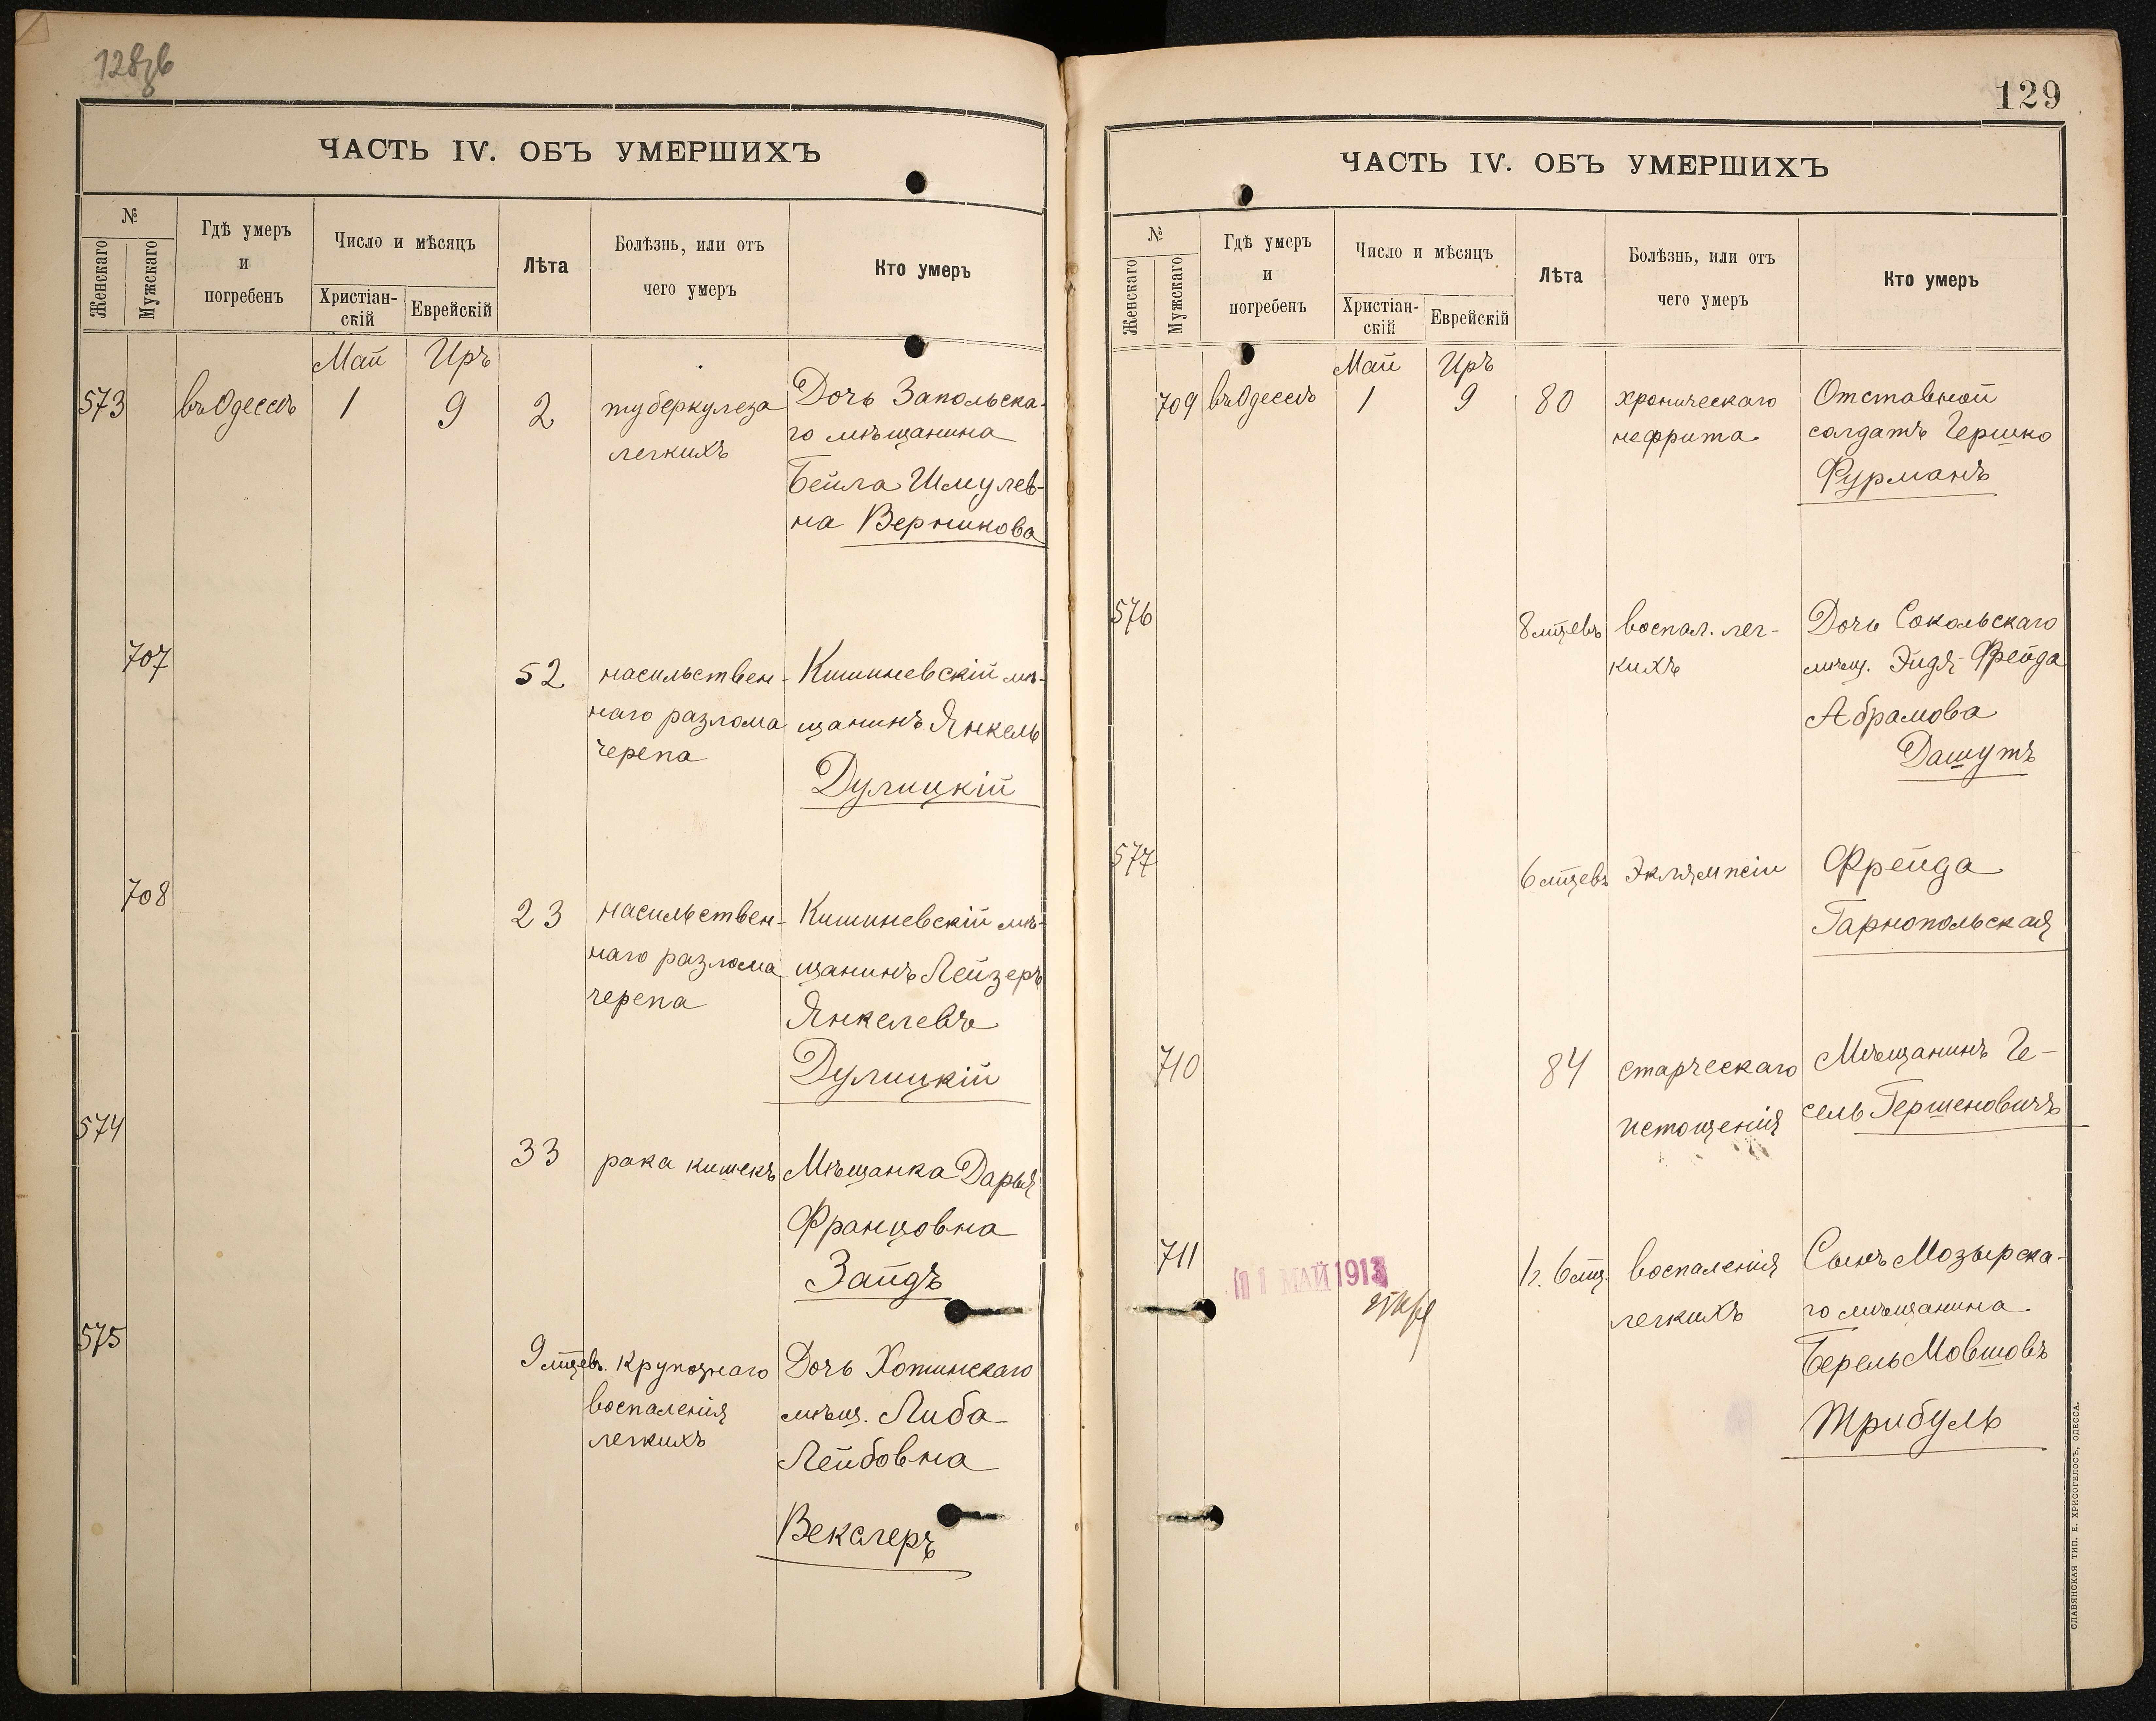 128об
ЧАСТЬ IV. ОБЪ УМЕРШИХЪ
№
Женскаго
Мужскаго
Гдѣ умеръ
и
погребенъ
Число и мѣсяцъ
Христіан-
скій
Еврейскій
Лѣта
Болѣзнь, или отъ
чего умеръ
Кто умеръ
Май Иръ
573 въ Одессѣ 1 9 2 туберкулеза Дочь Запольска-
легкихъ го мѣщанина
Бейла Шмулев-
на Верникова
707 52 насильствен- Кишиневскій мѣ-
наго разлома щанинъ Янкель
черепа Дулицкій
708 23 насильствен- Кишиневскій мѣ-
наго разлома щанинъ Лейзеръ
черепа Янкелевъ
Дулицкій
574 33 рака кишекъ Мѣщанка Дарья
Францовна
Зайдъ
575 9 мцевъ. крупознаго Дочь Хотинскаго
воспаленія мѣщ. Либа
легкихъ Лейбовна
Векслеръ
129
ЧАСТЬ IV. ОБЪ УМЕРШИХЪ
№
Женскаго
Мужскаго
Гдѣ умеръ
и
погребенъ
Число и мѣсяцъ
Христіан-
скій
Еврейскій
Лѣта
Болѣзнь, или отъ
чего умеръ
Кто умеръ
Май Иръ
709 въ Одессѣ 1 9 80 хроническаго Отставной
нефрита солдатъ Гершко
Фурманъ
576 8 мцевъ воспал. лег- Дочь Сокольскаго
кихъ мѣщ. Эйдя-Фрейда
Абрамова
Дашутъ
577 6 мцевъ Эклямпсіи Фрейда
Тарнопольская
710 84 старческаго Мѣщанинъ Ге-
истощенія сель Гершеновичъ
711 1г. 6 мц. воспаленія Сынъ Мозырска-
легкихъ го мѣщанина
Берель Мовшовъ
Трибуль
11 МАЙ 1913
СЛАВЯНСКАЯ ТИП. Е. ХРИСОГЕЛОСЪ, ОДЕССА.